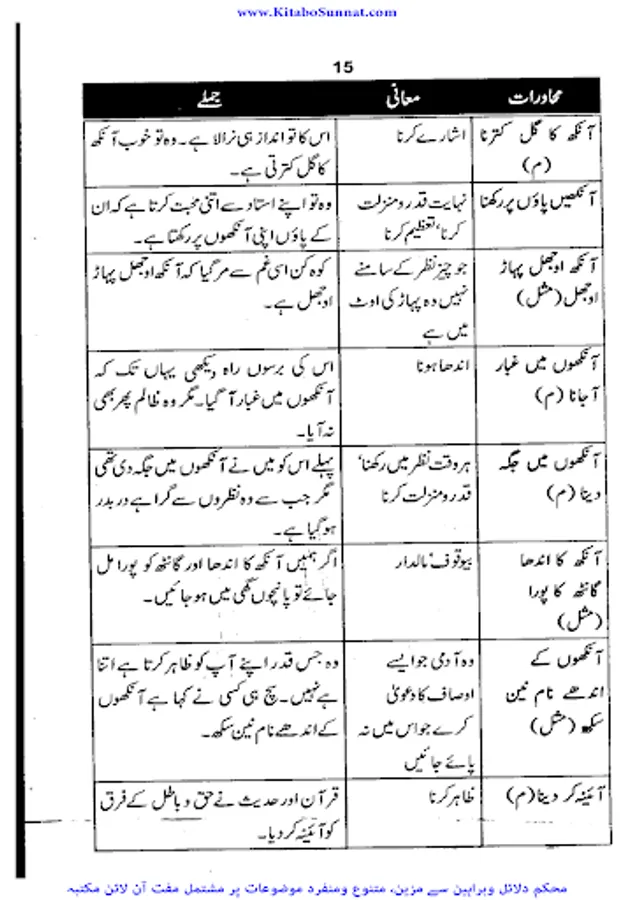 www.KitaboSunnat.com
15
محاورات معانی جملے
آنکھ کا گل کترنا اشارے کرنا اس کا تو انداز ہی نرالا ہے۔ وہ تو خوب آنکھ
(م) کا گل کترتی ہے۔
آنکھیں پاؤں پر رکھنا نہایت قدر و منزلت وہ تو اپنے استاد سے اتنی محبت کرتا ہے کہ ان
کرنا، تعظیم کرنا کے پاؤں اپنی آنکھوں پر رکھتا ہے۔
آنکھ اوجھل پہاڑ جو چیز نظر کے سامنے کوہ کن اسی غم سے مر گیا کہ آنکھ اوجھل پہاڑ
اوجھل (مثل) نہیں وہ پہاڑ کی اوٹ اوجھل ہے۔
میں ہے
آنکھوں میں غبار اندھا ہونا اس کی برسوں راہ دیکھی یہاں تک کہ
آ جانا (م) آنکھوں میں غبار آ گیا۔ مگر وہ ظالم پھر بھی
نہ آیا۔
آنکھوں میں جگہ ہر وقت نظر میں رکھنا، پہلے اس کو میں نے آنکھوں میں جگہ دی تھی
دینا (م) قدر و منزلت کرنا مگر جب سے وہ نظروں سے گرا ہے در بدر
ہو گیا ہے۔
آنکھ کا اندھا بیوقوف مالدار اگر ہمیں آنکھ کا اندھا اور گانٹھ کو پورا مل
گانٹھ کا پورا جائے تو پانچوں گھی میں ہو جائیں۔
(مثل)
آنکھوں کے وہ آدمی جو ایسے وہ جس قدر اپنے آپ کو ظاہر کرتا ہے اتنا
اندھے نام نین اوصاف کا دعویٰ ہے نہیں۔ سچ ہی کسی نے کہا ہے آنکھوں
سکھ (مثل) کرے جو اس میں نہ کے اندھے نام نین سکھ۔
پائے جائیں
آئینہ کر دینا (م) ظاہر کرنا قرآن اور حدیث نے حق و باطل کے فرق
کو آئینہ کر دیا۔
محکم دلائل وبراہین سے مزین، متنوع ومنفرد موضوعات پر مشتمل مفت آن لائن مکتبہ